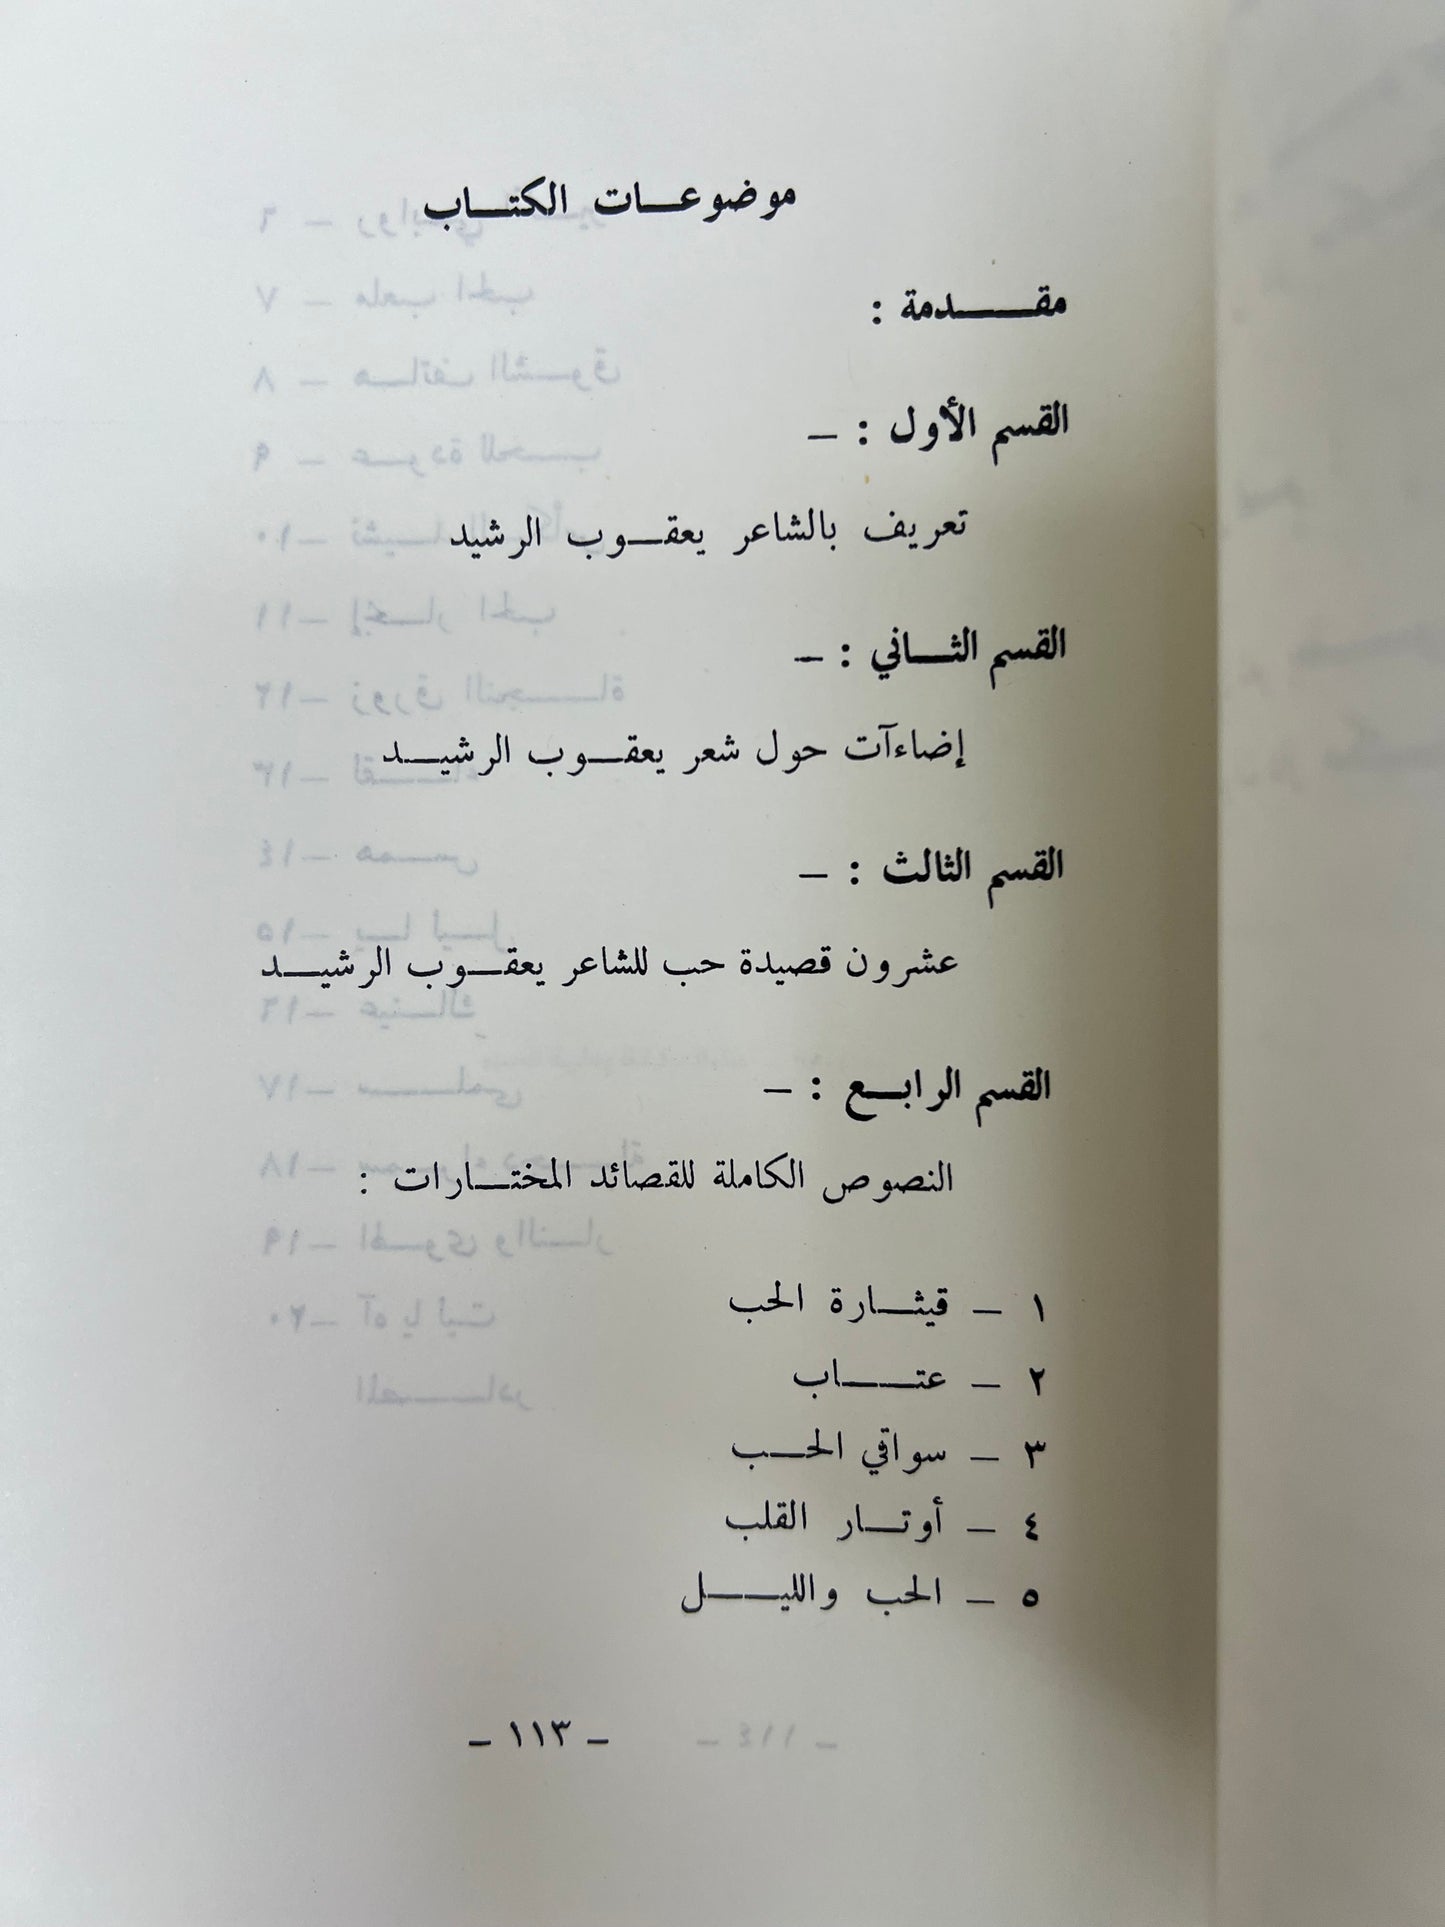 موضوعات الكتاب
مقدمة :
القسم الأول : –
تعريف بالشاعر يعقوب الرشيد
القسم الثاني : –
إضاءآت حول شعر يعقوب الرشيد
القسم الثالث : –
عشرون قصيدة حب للشاعر يعقوب الرشيد
القسم الرابع : –
النصوص الكاملة للقصائد المختارات :
١ – قيثارة الحب
٢ – عتاب
٣ – سواقي الحب
٤ – أوتار القلب
٥ – الحب والليل
– ١١٣ –